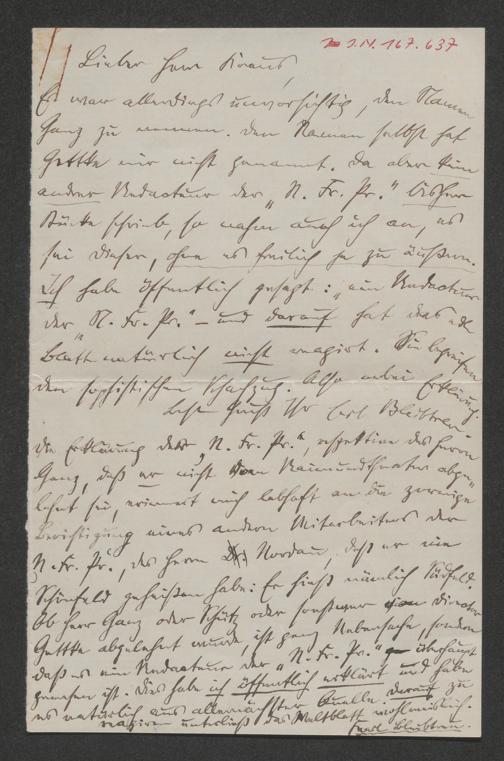 I.N. 167.637
Lieber Herr Kraus,
Es war allerdings unvorsichtig, den Namen
Ganz zu nennen. Den Namen selbst hat
Gettke mir nicht genannt. Da aber kein
andrer Redacteur der „N. Fr. Pr." bisher
Stücke schrieb, so nahm auch ich an, es
sei dieser, ohne es freilich je zu äußern.
Ich habe öffentlich gesagt: „ein Redacteur
der „N. Fr. Pr." – und darauf hat das
Blatt natürlich nicht reagirt. Sie begreifen
den sophistischen Schachzug. Also anbei Erklärung.
Besten Gruß Ihr Carl Bleibtreu
Die Erklärung der „N. Fr. Pr.", respektive des Herrn
Ganz, daß er nicht vom Raimundtheater abge-
lehnt sei, erinnert mich lebhaft an die zornige
Berichtigung eines andern Mitarbeiters der
„N. Fr. Pr.", des Herrn Nordau, daß er nie
Schönfeld geheißen habe: Er hieß nämlich Südfeld.
Ob Herr Ganz oder Schütz oder sonstwer von Director
Gettke abgelehnt wurde, ist ganz Nebensache, sondern
daß es ein Redacteur der „N. Fr. Pr." überhaupt
gewesen ist. Dies habe ich öffentlich erklärt und habe
es natürlich aus allernächster Quelle. Darauf zu
reagiren unterließ das Weltblatt wohlweislich.
Carl Bleibtreu.